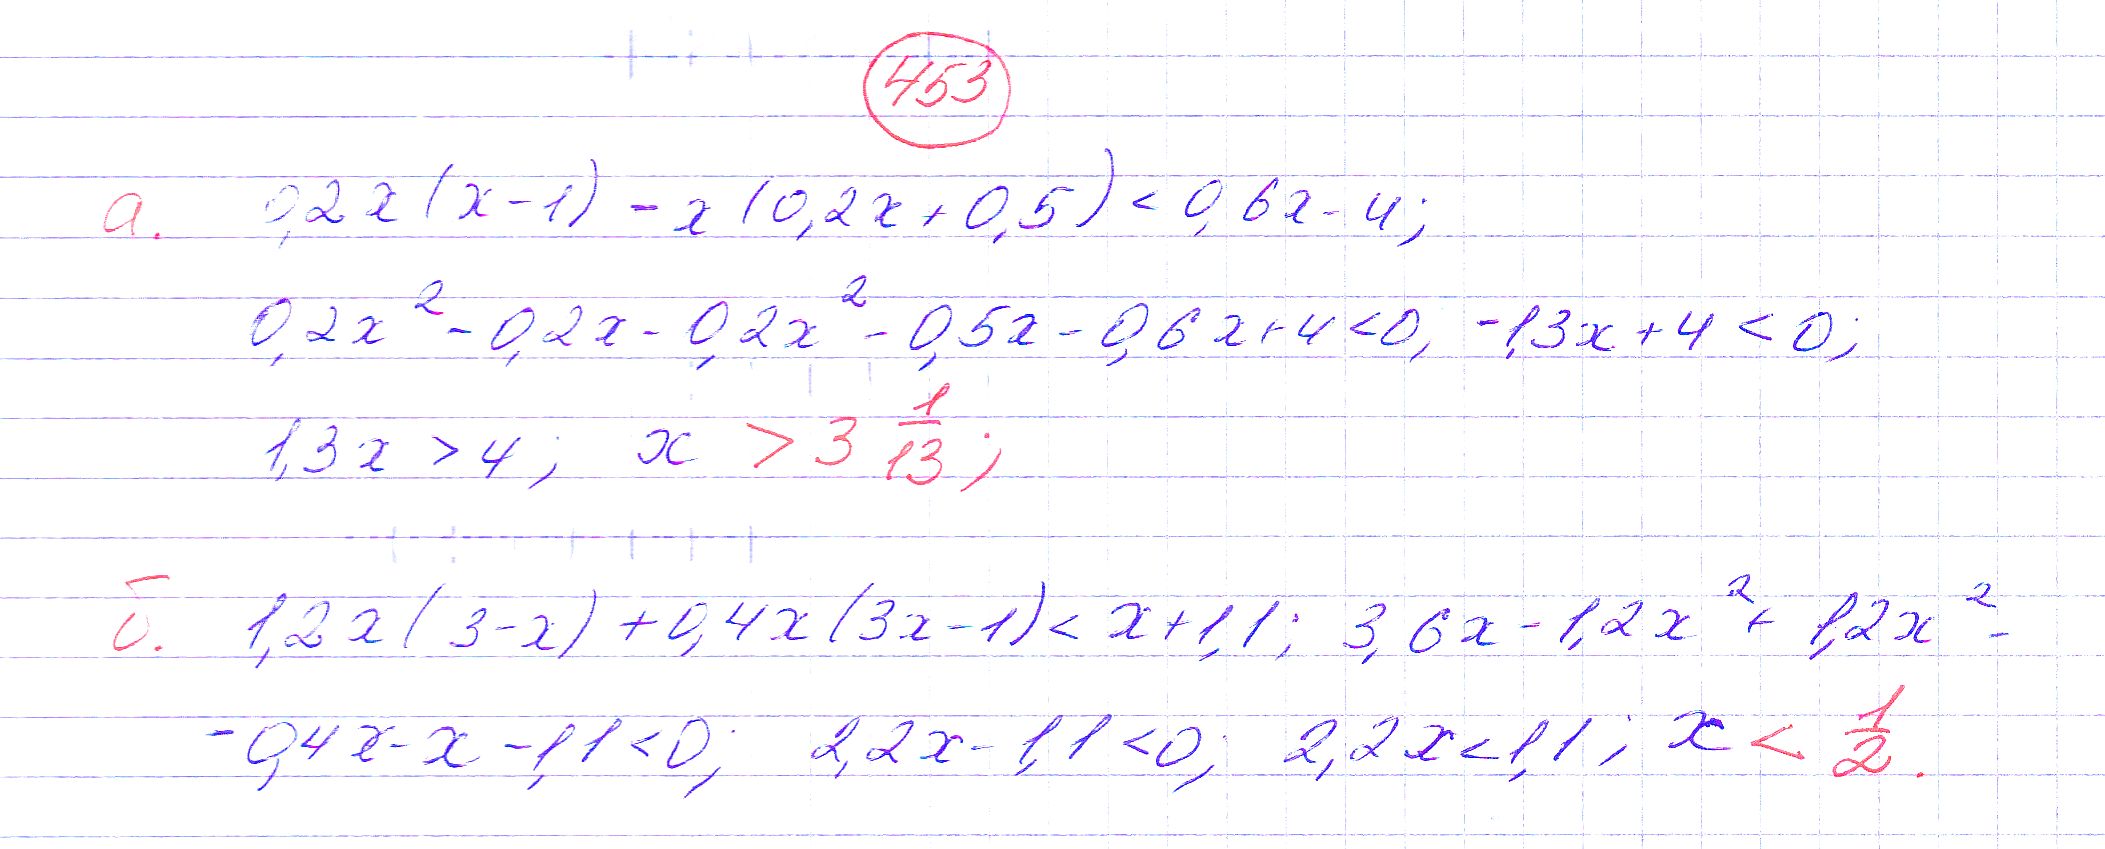 453
а. 0,2x(x-1) - x(0,2x+0,5) < 0,6x-4;
0,2x² - 0,2x - 0,2x² - 0,5x - 0,6x+4<0, -1,3x+4<0;
1,3x > 4; x > 3 1/13;
б. 1,2x(3-x) + 0,4x(3x-1) < x+1,1; 3,6x - 1,2x² + 1,2x² -
- 0,4x - x - 1,1<0; 2,2x - 1,1<0; 2,2x<1,1; x < 1/2.